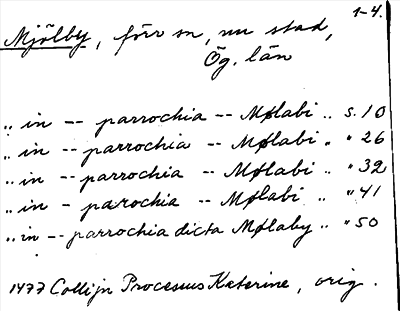 1-4.
Mjölby, förr sn, nu stad,
Ög. län
„in -- parrochia -- Mølabi „ s. 10
„in -- parrochia -- Mølabi „ " 26
„in -- parrochia -- Mølabi „ " 32
„in - parochia -- Mølabi „ " 41
„in -- parrochia dicta Mølaby „ " 50
1477 Collijn Processus Katerine, orig.